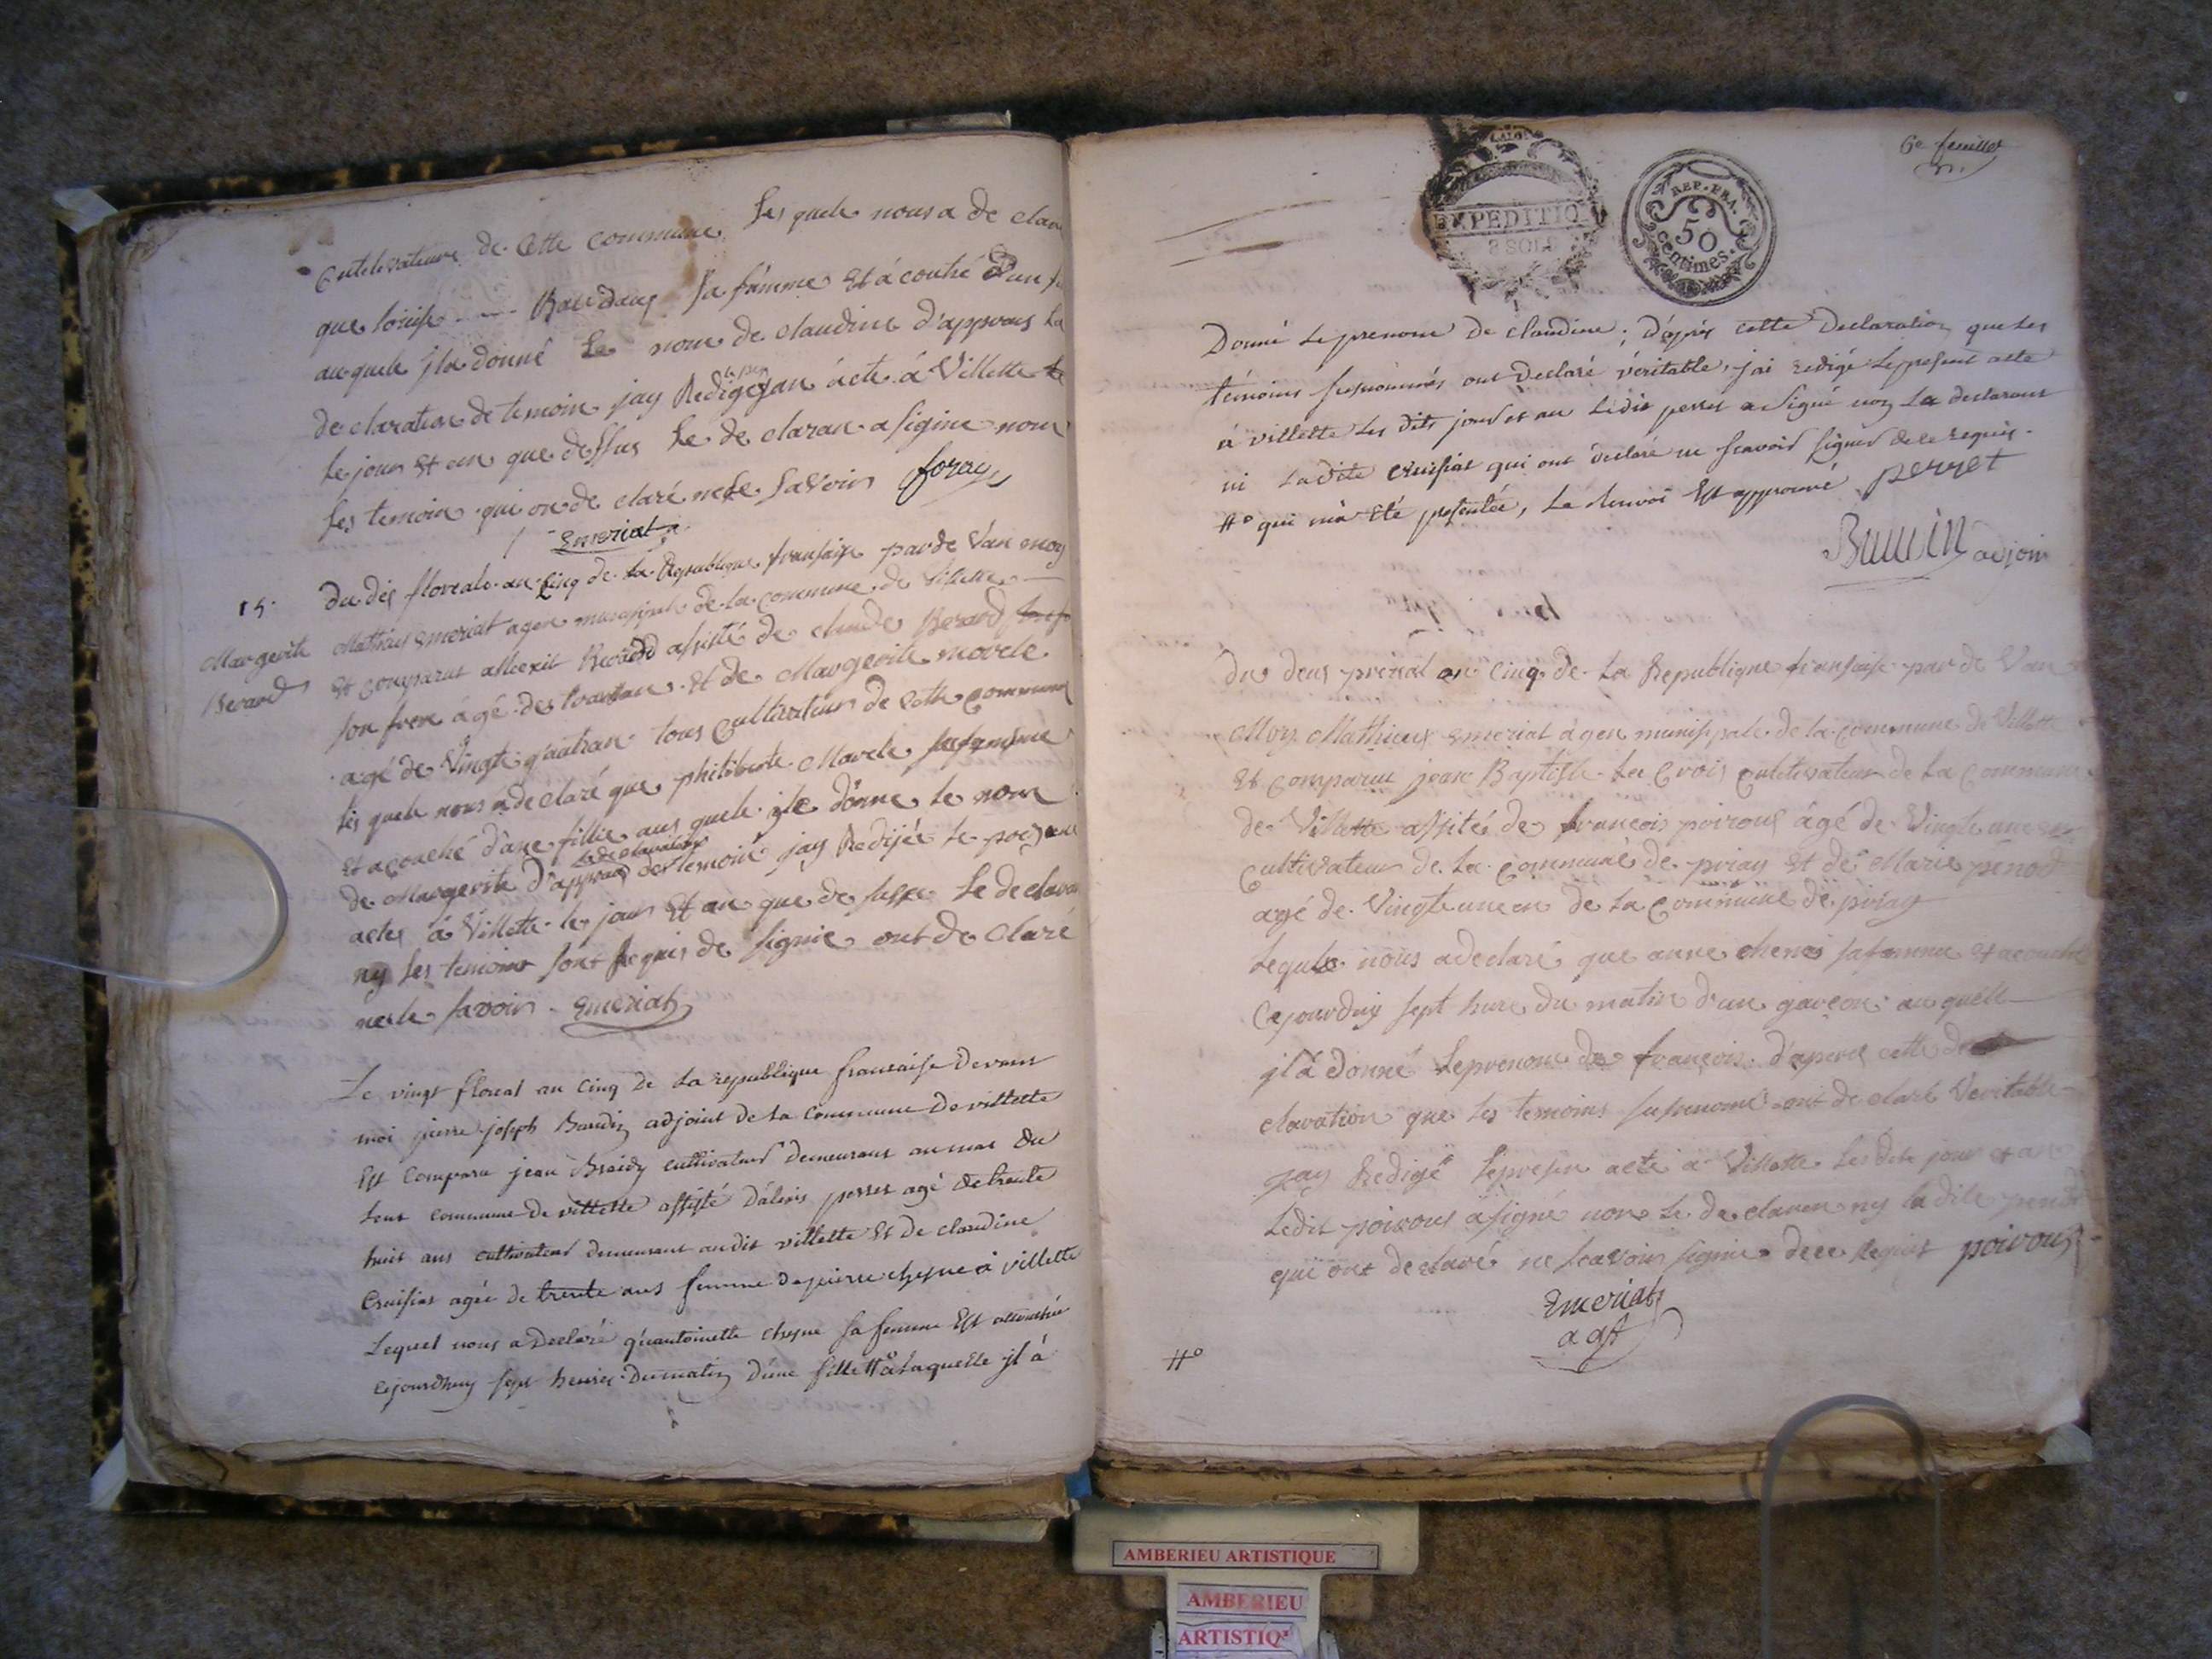 Cutelvateure de Cette commune Les quele nous a de clar
que loise Baudaug sa fámme Et á couhé d'un
au quele jla donné Le nome de claudine d'approus La
de claration de temoin jay Redigé le pren an ácte á Villette Le
le jour Et an que dessus Le de claran a signie nom
les temoin qui on de claré ne le savoir foray
Emeriat
15. du dis floreale an Cinq de La Republique fransaise par de Van moy
Margerite Mathieu Emeriat agen municipale de la commune de Villette
Berard Et comparut allexit Berard assisté de claude Berard
son frere ágé des trantan Et de Margerite movele
agé de Vingte quatran tous Cultivateur de Cette commune
les quele nous a de claré que philiberte Movele sa famme
Et acouché d'une fillie aus quele jle donne Le nom
de Margerite d'approus la de claration des temoine jay Redijée Le
actes á Villette le jour Et an que de susse Le declaran
ny Les temoins sont Requis de signie ont de Claré
ne le savoir Emeriat
Le vingt floreal an cinq de La republique francaise Devant
moi pierre joseph Baudin adjoint de la Commune de villette
Est Comparu jean Braidy cultivateur Demeurant au mas du
commune de villette assisté D'alexis perret agé de trente
huit ans cultivateur demeurant audit villette Et de claudine
Cruisiat agée de trente ans femme de pierre cheyne á villette
Lequel nous a Declaré qu'antoinette cheyne sa femme Est accouchée
cejourdhuy sept heures du matin d'une fille #° á Laquelle jl á
6e feuillet
EXPEDITIO
2 SOLS
REP. FRA.
50
centimes.
Donné Le prenom de claudine; D'après cette Declaration que Les
témoins susnommés ont Declaré véritable, j'ai redigé Le present acte
á villette Les dits jour et an Ledit perret a signé non Le declarant
ni Ladite Cruisiat qui ont declaré ne scavoir signer de ce requis.
#° qui m'a été presentée, Le Renvoi Est approuvé perret
Baudin adjoin
du deus prerial an Cinq de La Republique fransaise par de Van
Moy Mathieux Emeriat ágen munissipale de la commune de Villette
Et comparut jean Baptiste La Crois Cultivateur de La Commune
de Villette assités de francois poirous ágé de Vingte une
Cultivateur de La Commune de priay Et de Marie penod
agé de Vingte une en de La Commune de priay
Le qule nous a declaré que anne chene sa famme Et acouché
Cejourduy sept hure du matin d'un garcon au quell
jl á donné Le prenom de francois d'aperes cette de
claration que Les temoins susnomé ont de claré Veritable
jay Redigé Le presen acte á Villette Les dits jour et an
Ledit poirous a signé non Le de claren ny la dite penod
qui ont declaré ne scavoir signie de ce Requis poirous
Emeriat
agt
#°
AMBERIEU ARTISTIQUE
AMBERIEU
ARTISTIQ